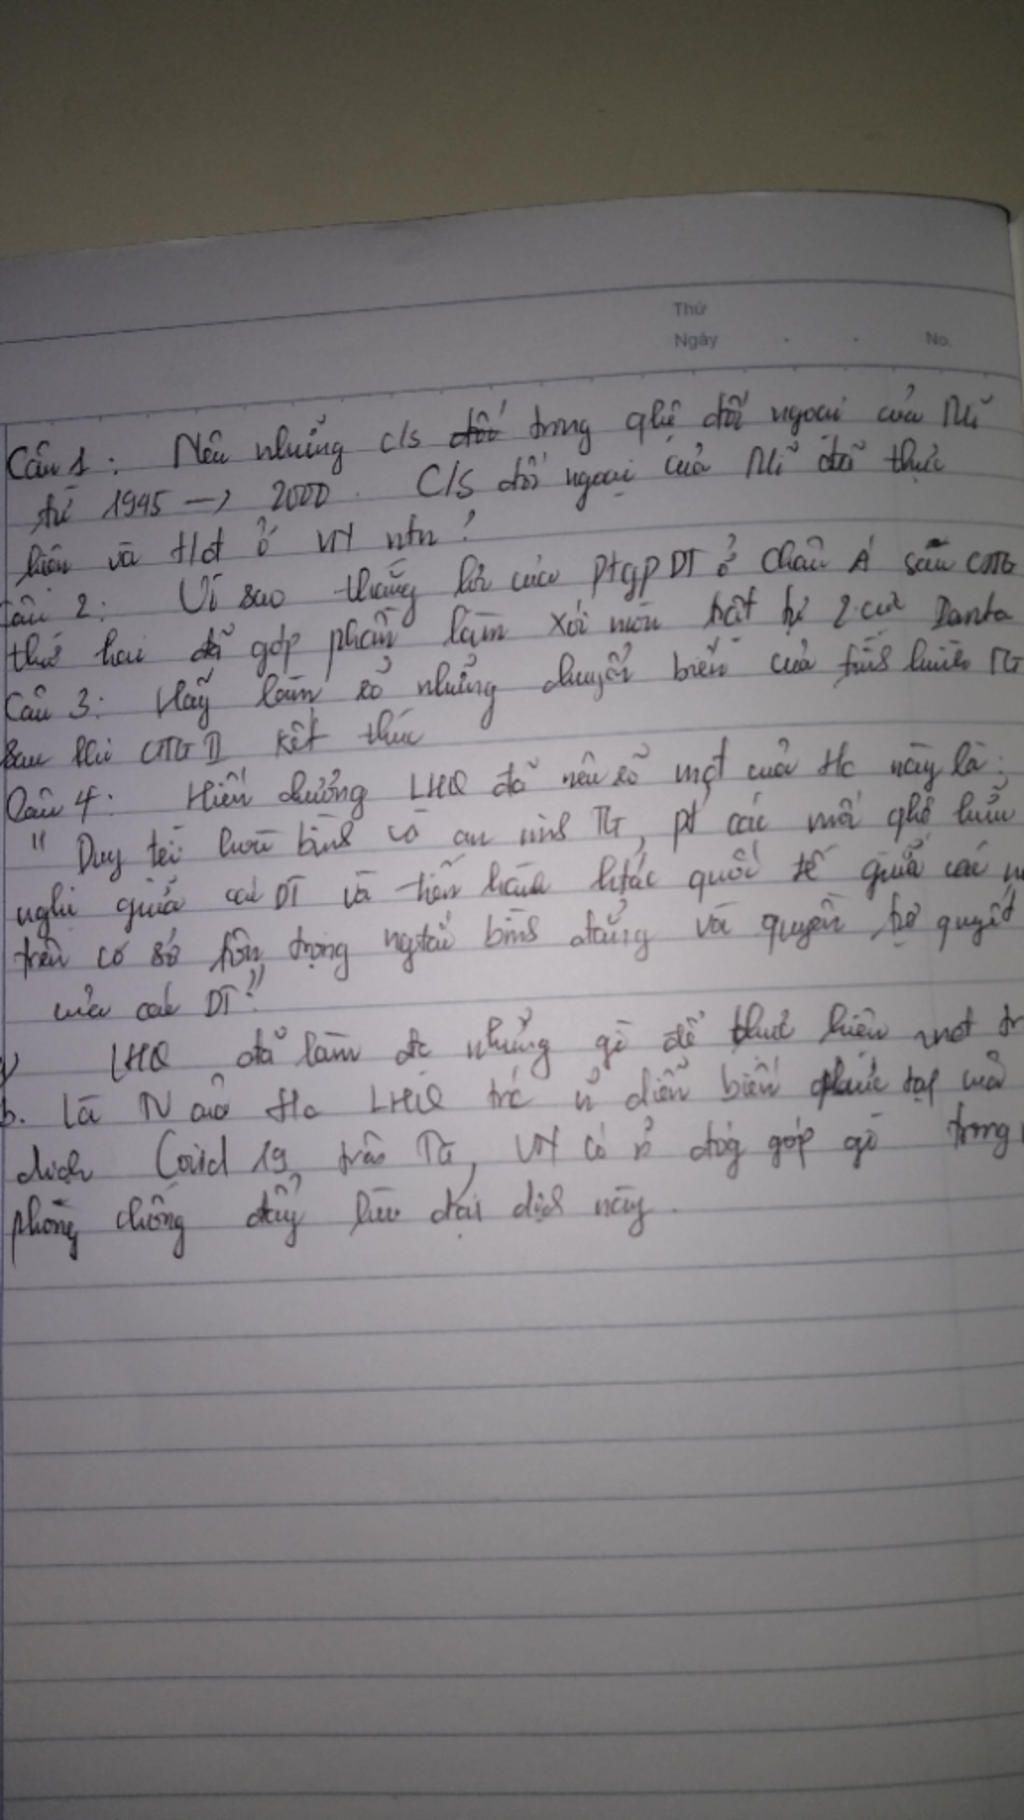 Thứ
Ngày No.
Câu 1: Nêu những c/s trong qhệ đối ngoại của Mĩ
từ 1945 → 2000. C/S đối ngoại của Mĩ đã thực
hiện và ở VN ntn?
Câu 2: Vì sao thắng lợi của ptgpDT ở Châu Á sau CTTG
thứ hai đã góp phần làm xói mòn trật tự 2 cực Ianta
Câu 3: Hãy làm rõ những chuyển biến của TG
sau khi CTTG II kết thúc
Câu 4: Hiến chương LHQ đã nêu rõ mđ của này là:
"Duy trì hoà bình và an ninh TG, pt các mối qhệ hữu
nghị giữa các DT và tiến hành htác quốc tế giữa các
trên cơ sở tôn trọng ngtắc bình đẳng và quyền tự quyết
của các DT"
LHQ đã làm đc những gì để thực hiện
b. Là LHQ trc diễn biến phức tạp của
dịch Covid 19 trên TG, VN có đóng góp gì trong
phòng chống đẩy lùi đại dịch này.